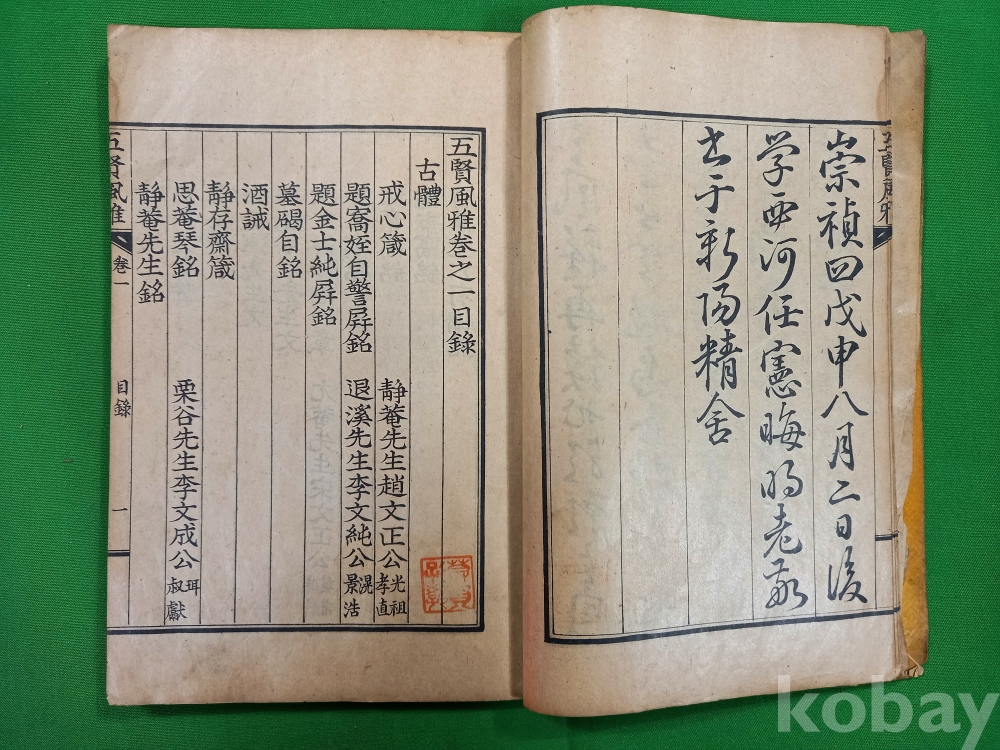 五賢風雅
崇禎四戊申八月二日後
学西河任憲晦明老敬
書于新陽精舍
五賢風雅卷之一目錄
古體
戒心箴 靜菴先生趙文正公 光祖 孝直
題寯姪自警屛銘 退溪先生李文純公 滉 景浩
題金士純屛銘
墓碣自銘
酒誡
靜存齋箴
思菴琴銘 栗谷先生李文成公 珥 叔獻
靜菴先生銘
五賢風雅 卷一 目錄 一
kobay